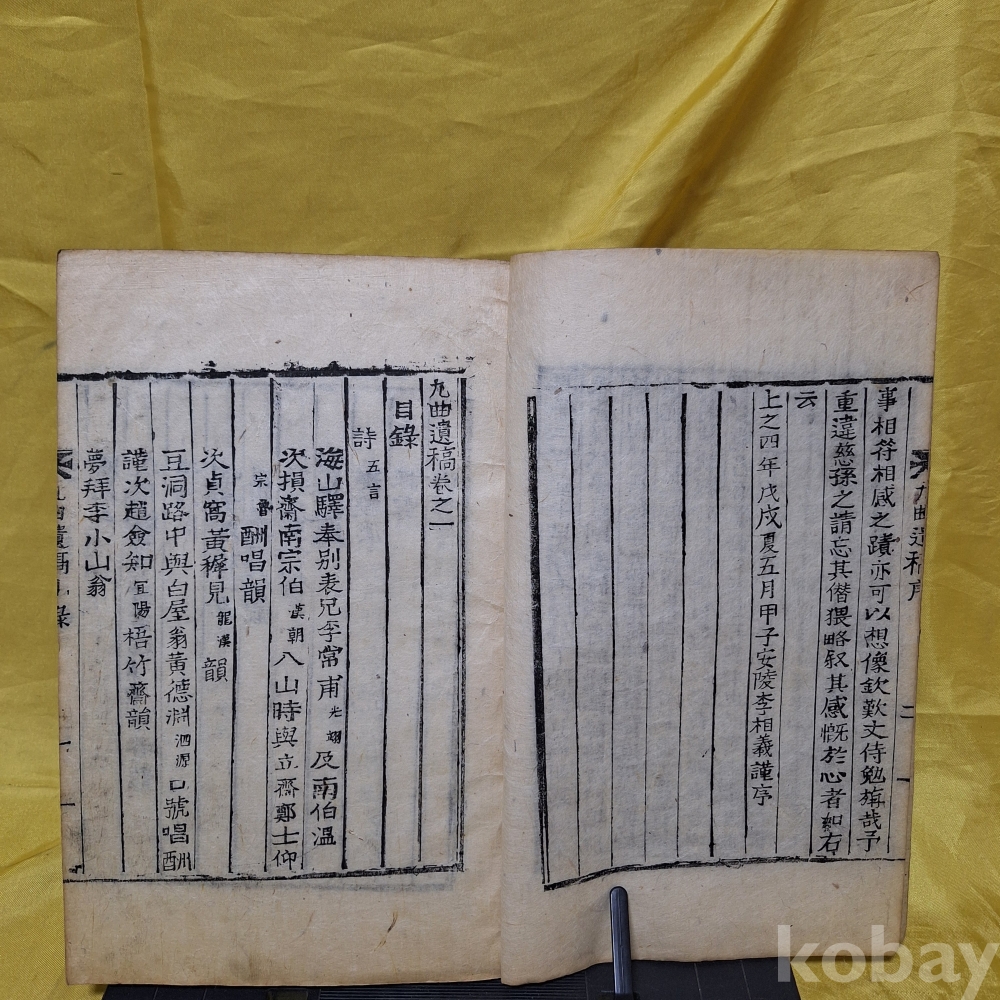 事相符相感之蹟亦可以想像欽歎文侍勉旃哉予
重違慈孫之請忘其僭猥略叙其感慨於心者如右
云
上之四年戊戌夏五月甲子安陵李相羲謹序
九曲遺稿序 二
九曲遺稿卷之一
目錄
詩 五言
海山驛奉別表兄李常甫 光翊 及南伯溫
次損齋南宗伯 漢朝 八山時與立齋鄭士仰
宗魯 酬唱韻
次貞窩黃穉見 龍漢 韻
豆洞路中與白屋翁黃德淵 泗源 口號唱酬
謹次趙僉知 宜陽 梧竹齋韻
夢拜李小山翁
九曲遺稿目錄 一
kobay